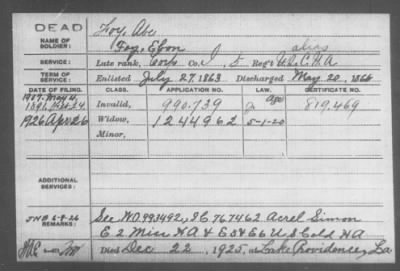 DEAD
NAME OF SOLDIER: Foy, Abe
Foy, Ebon alias
SERVICE: Late rank, Corp Co. I, 5 Reg't U.S.C.H.A
TERM OF SERVICE: Enlisted July 27, 1863 Discharged May 20, 1866
DATE OF FILING. CLASS. APPLICATION NO. LAW. CERTIFICATE NO.
1907. May 4, Age
1891, 24 Invalid, 990.739 819.469
1926 Apr 26 Widow, 1244962 5-1-20
Minor,
ADDITIONAL SERVICES:
REMARKS: See WO 993492, SC 767462 Acrel Simon
JNB 6-8-26 E 2 Miss HA & E5 & E6 U S Col HA
Died Dec 22, 1925, at Lake Providence, La